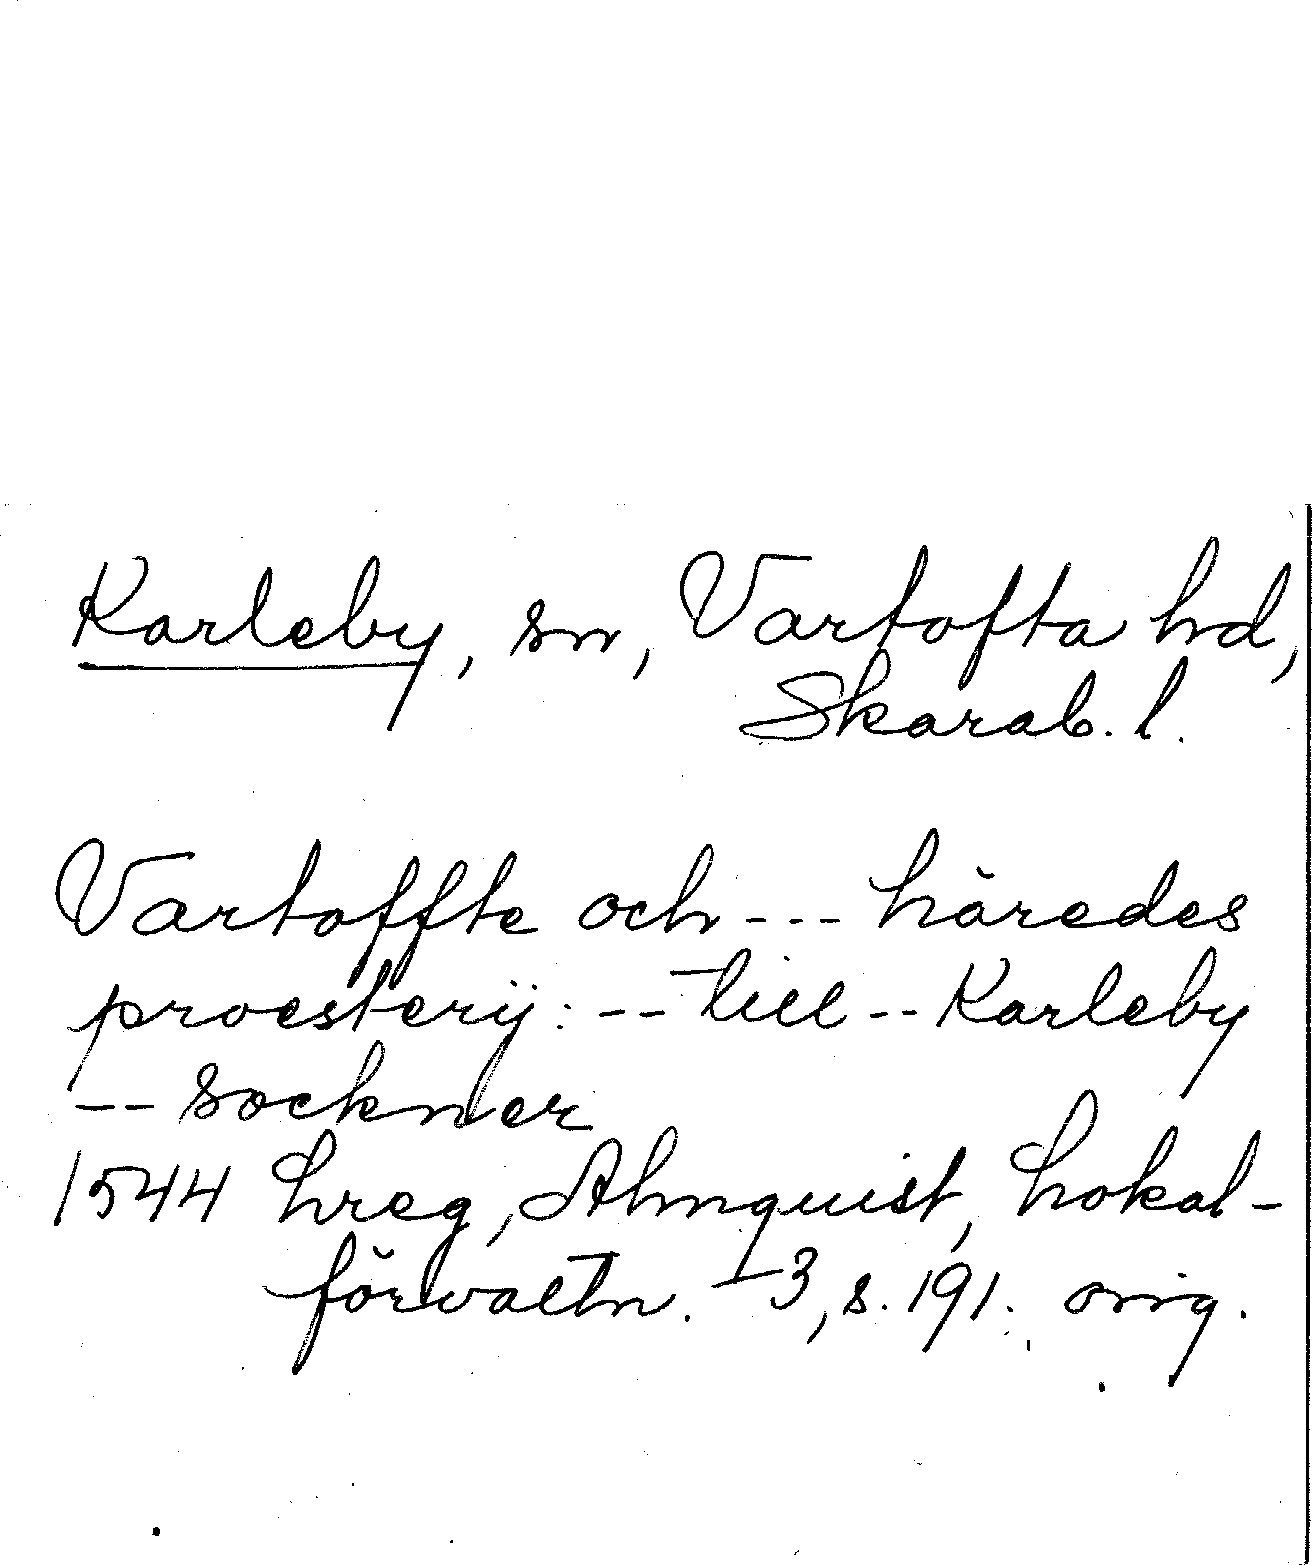 Karleby, sn, Vartofta hd,
Skarab. l.
Vartoffte och --- häredes
proesterij: -- till -- Karleby
-- sockner
1544 Lreg, Almquist, Lokal-
förvaltn. I 3, s. 191. orig.